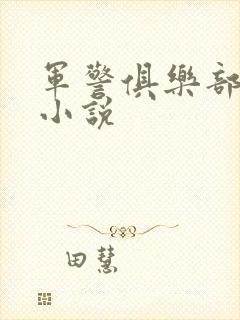 軍警俱樂部
小說
田慧